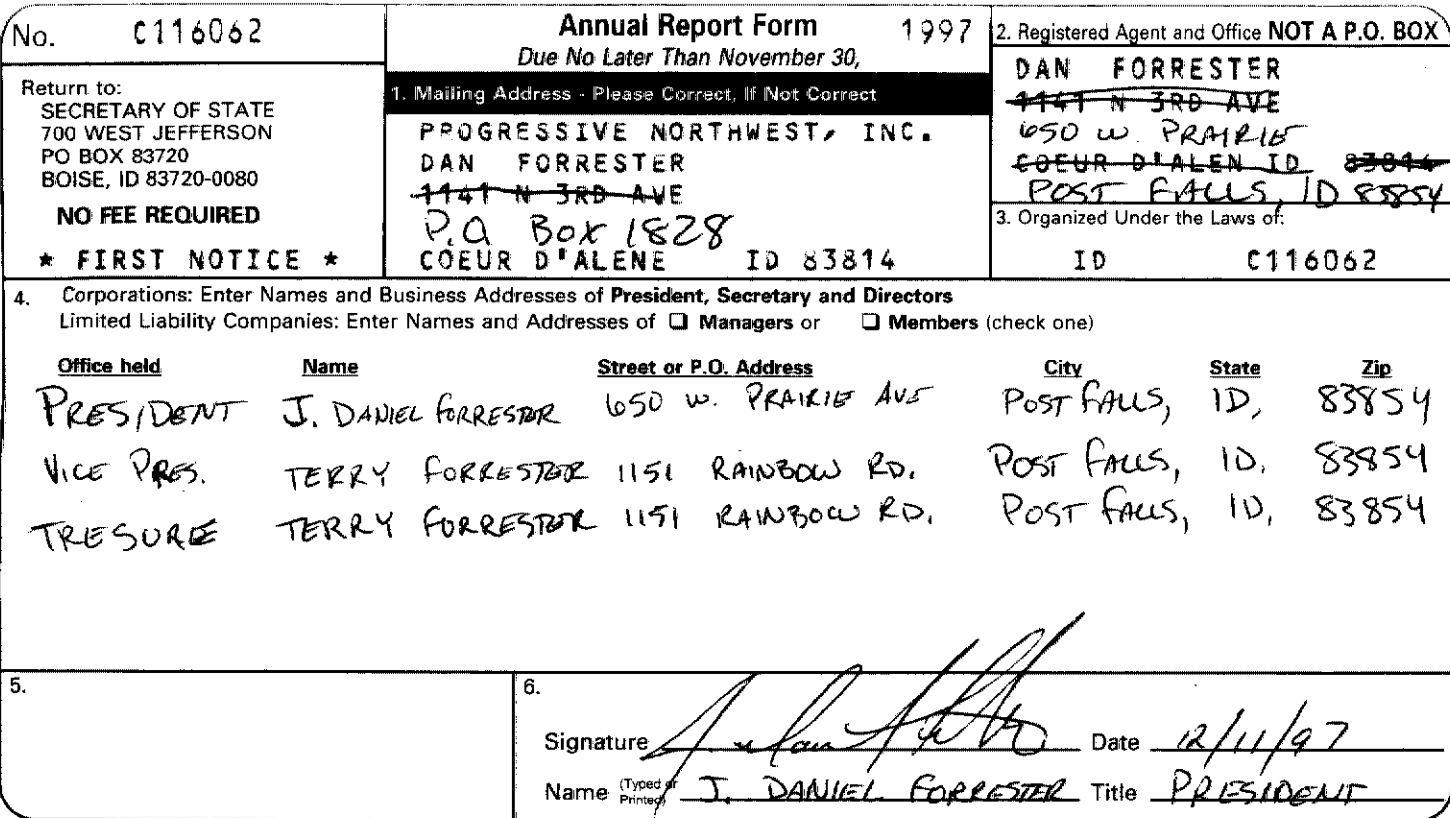 No. C116062
Annual Report Form 1997
Due No Later Than November 30,
Return to:
SECRETARY OF STATE
700 WEST JEFFERSON
PO BOX 83720
BOISE, ID 83720-0080
NO FEE REQUIRED
* FIRST NOTICE *
1. Mailing Address - Please Correct, If Not Correct
PROGRESSIVE NORTHWEST, INC.
DAN FORRESTER
1141 N 3RD AVE
P.O Box 1828
COEUR D'ALENE ID 83814
2. Registered Agent and Office NOT A P.O. BOX
DAN FORRESTER
1141 N 3RD AVE
650 W. PRAIRIE
COEUR D'ALEN ID 83814
POST FALLS, ID 83854
3. Organized Under the Laws of:
ID C116062
4. Corporations: Enter Names and Business Addresses of President, Secretary and Directors
Limited Liability Companies: Enter Names and Addresses of ❑ Managers or ❑ Members (check one)
Office held Name Street or P.O. Address City State Zip
PRESIDENT J. DANIEL FORRESTER 650 W. PRAIRIE AVE POST FALLS, ID, 83854
VICE PRES. TERRY FORRESTER 1151 RAINBOW RD. POST FALLS, ID. 83854
TRESURE TERRY FORRESTER 1151 RAINBOW RD. POST FALLS, ID, 83854
5.
6.
Signature Date 12/11/97
Name (Typed or Printed) J. DANIEL FORRESTER Title PRESIDENT